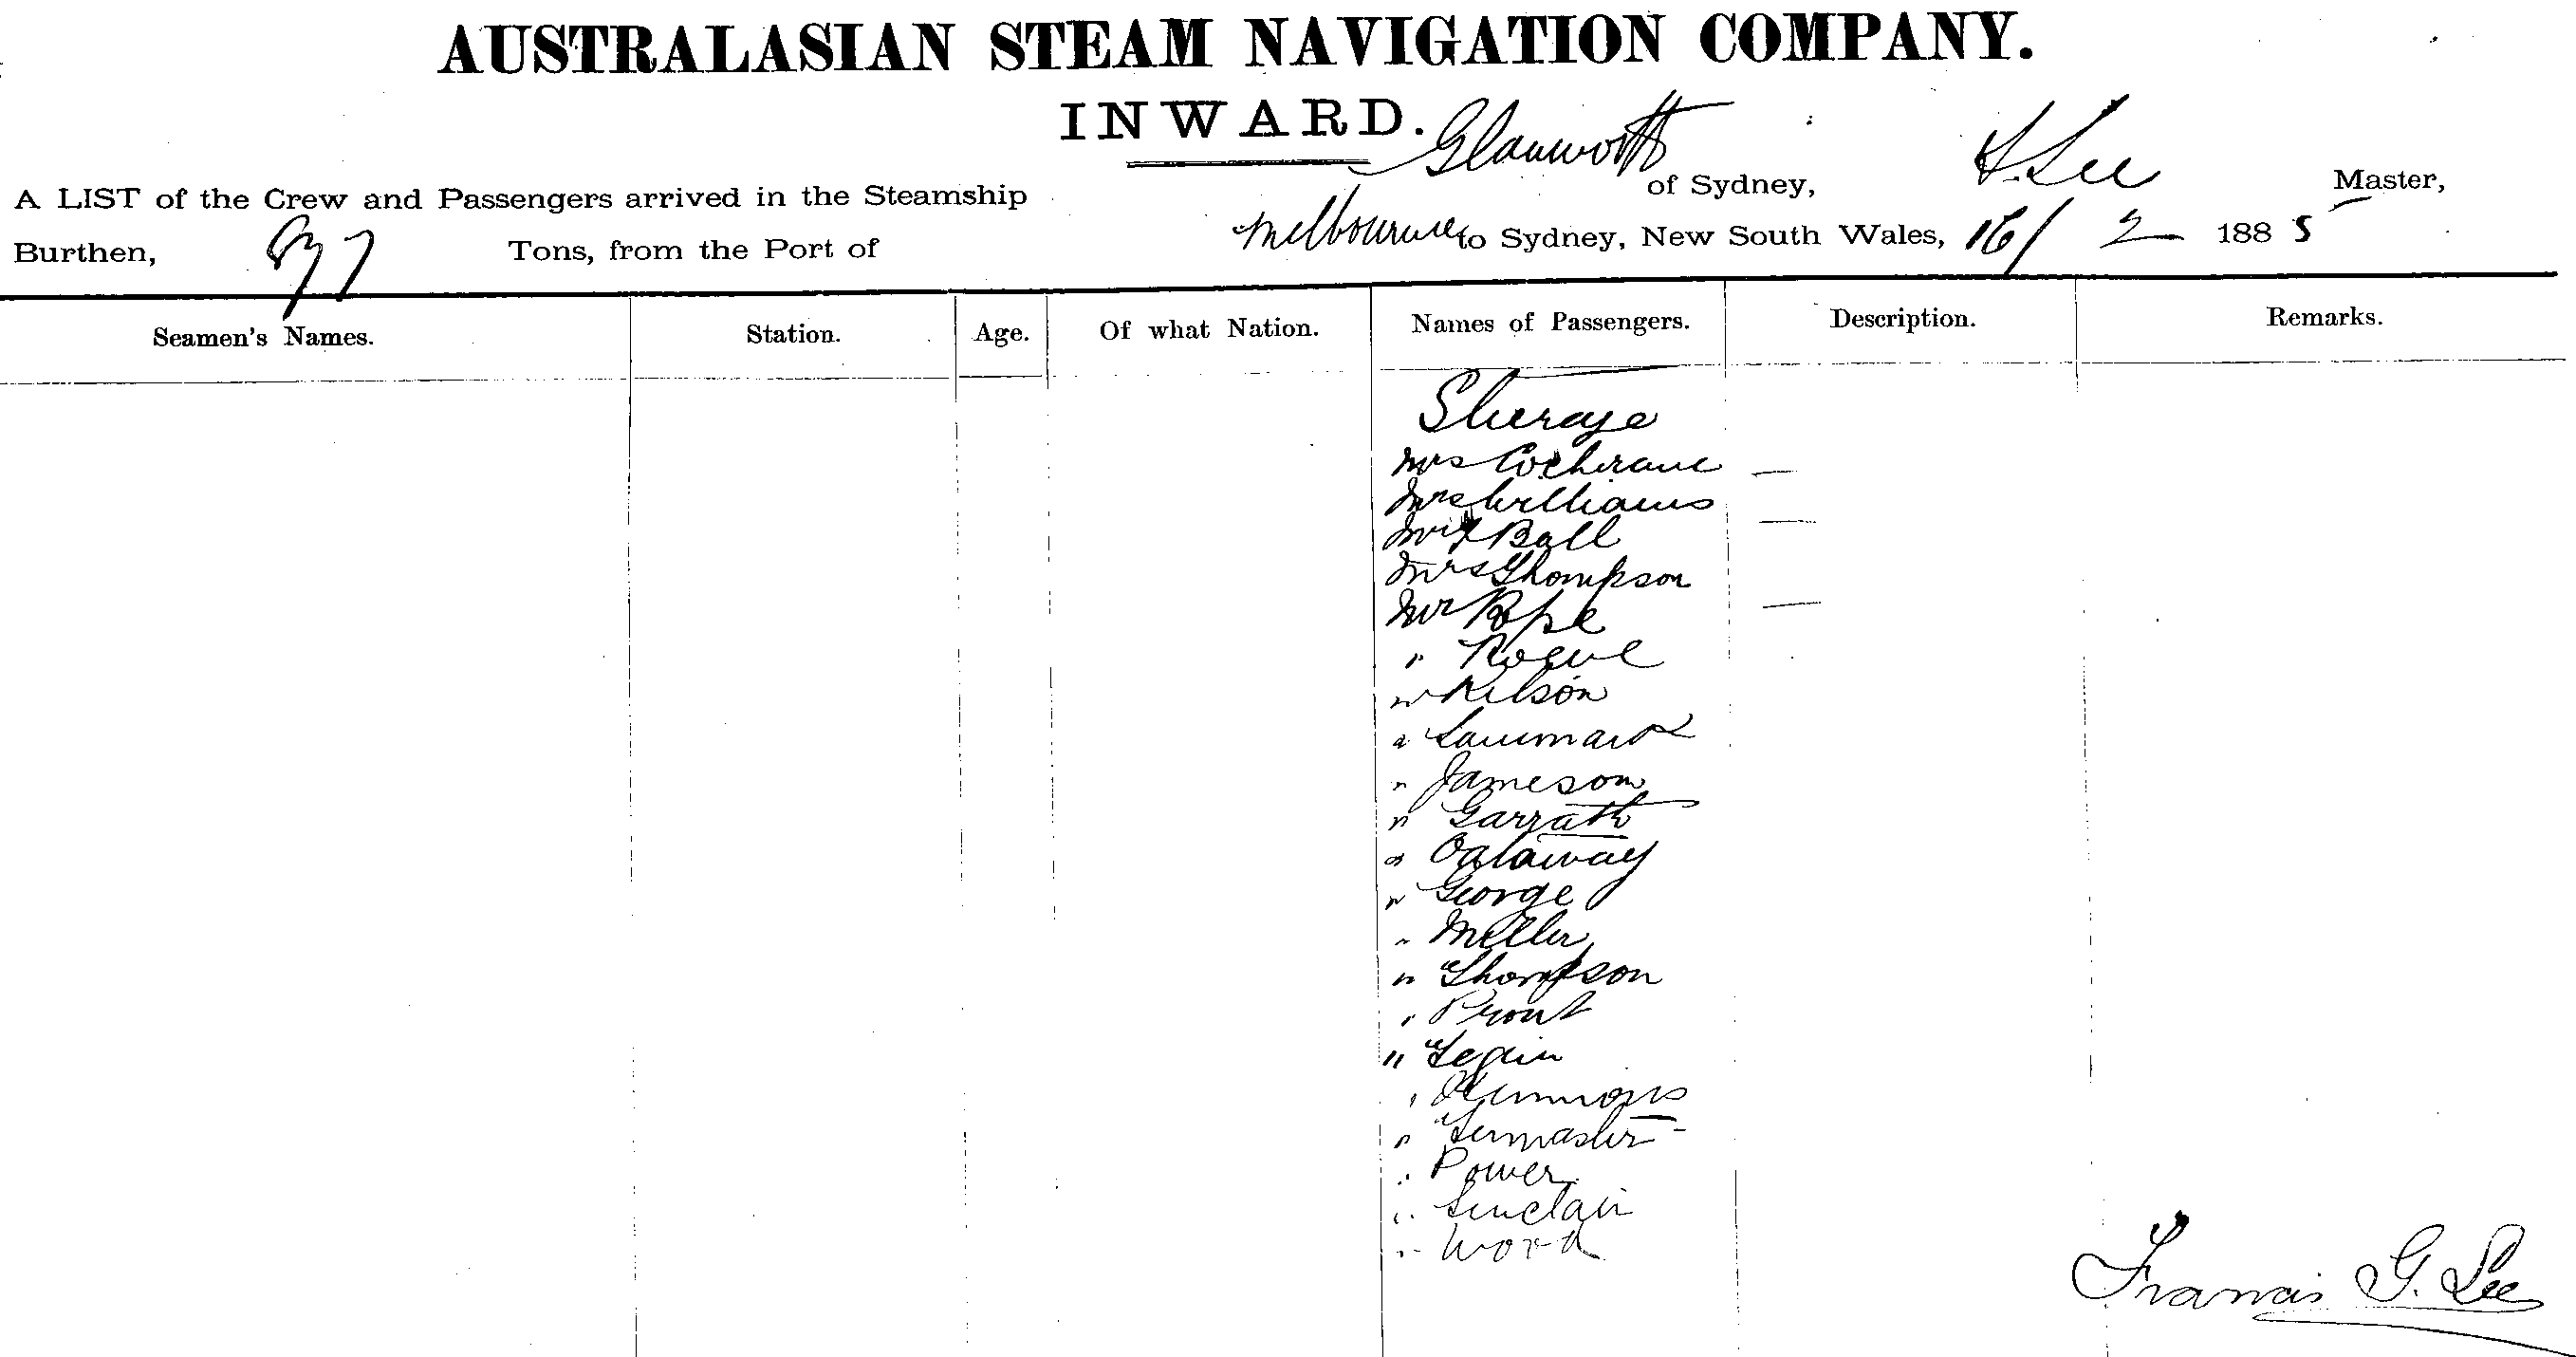 AUSTRALASIAN STEAM NAVIGATION COMPANY.
INWARD.
A LIST of the Crew and Passengers arrived in the Steamship Glanworth of Sydney, F. Lee Master,
Burthen, 877 Tons, from the Port of Melbourne to Sydney, New South Wales, 16/2 1885
Seamen's Names. Station. Age. Of what Nation. Names of Passengers. Description. Remarks.
Steerage
Mrs Cochrane —
Mrs Williams
Ball —
Mrs Thompson
Mr Pope —
"
" Nelson
"
" Jameson
" Garrath
" Oalaway
" George
" Miller
" Thompson
" Prout
"
"
"
" Power
" Sinclair
" Word
Francis G. Lee